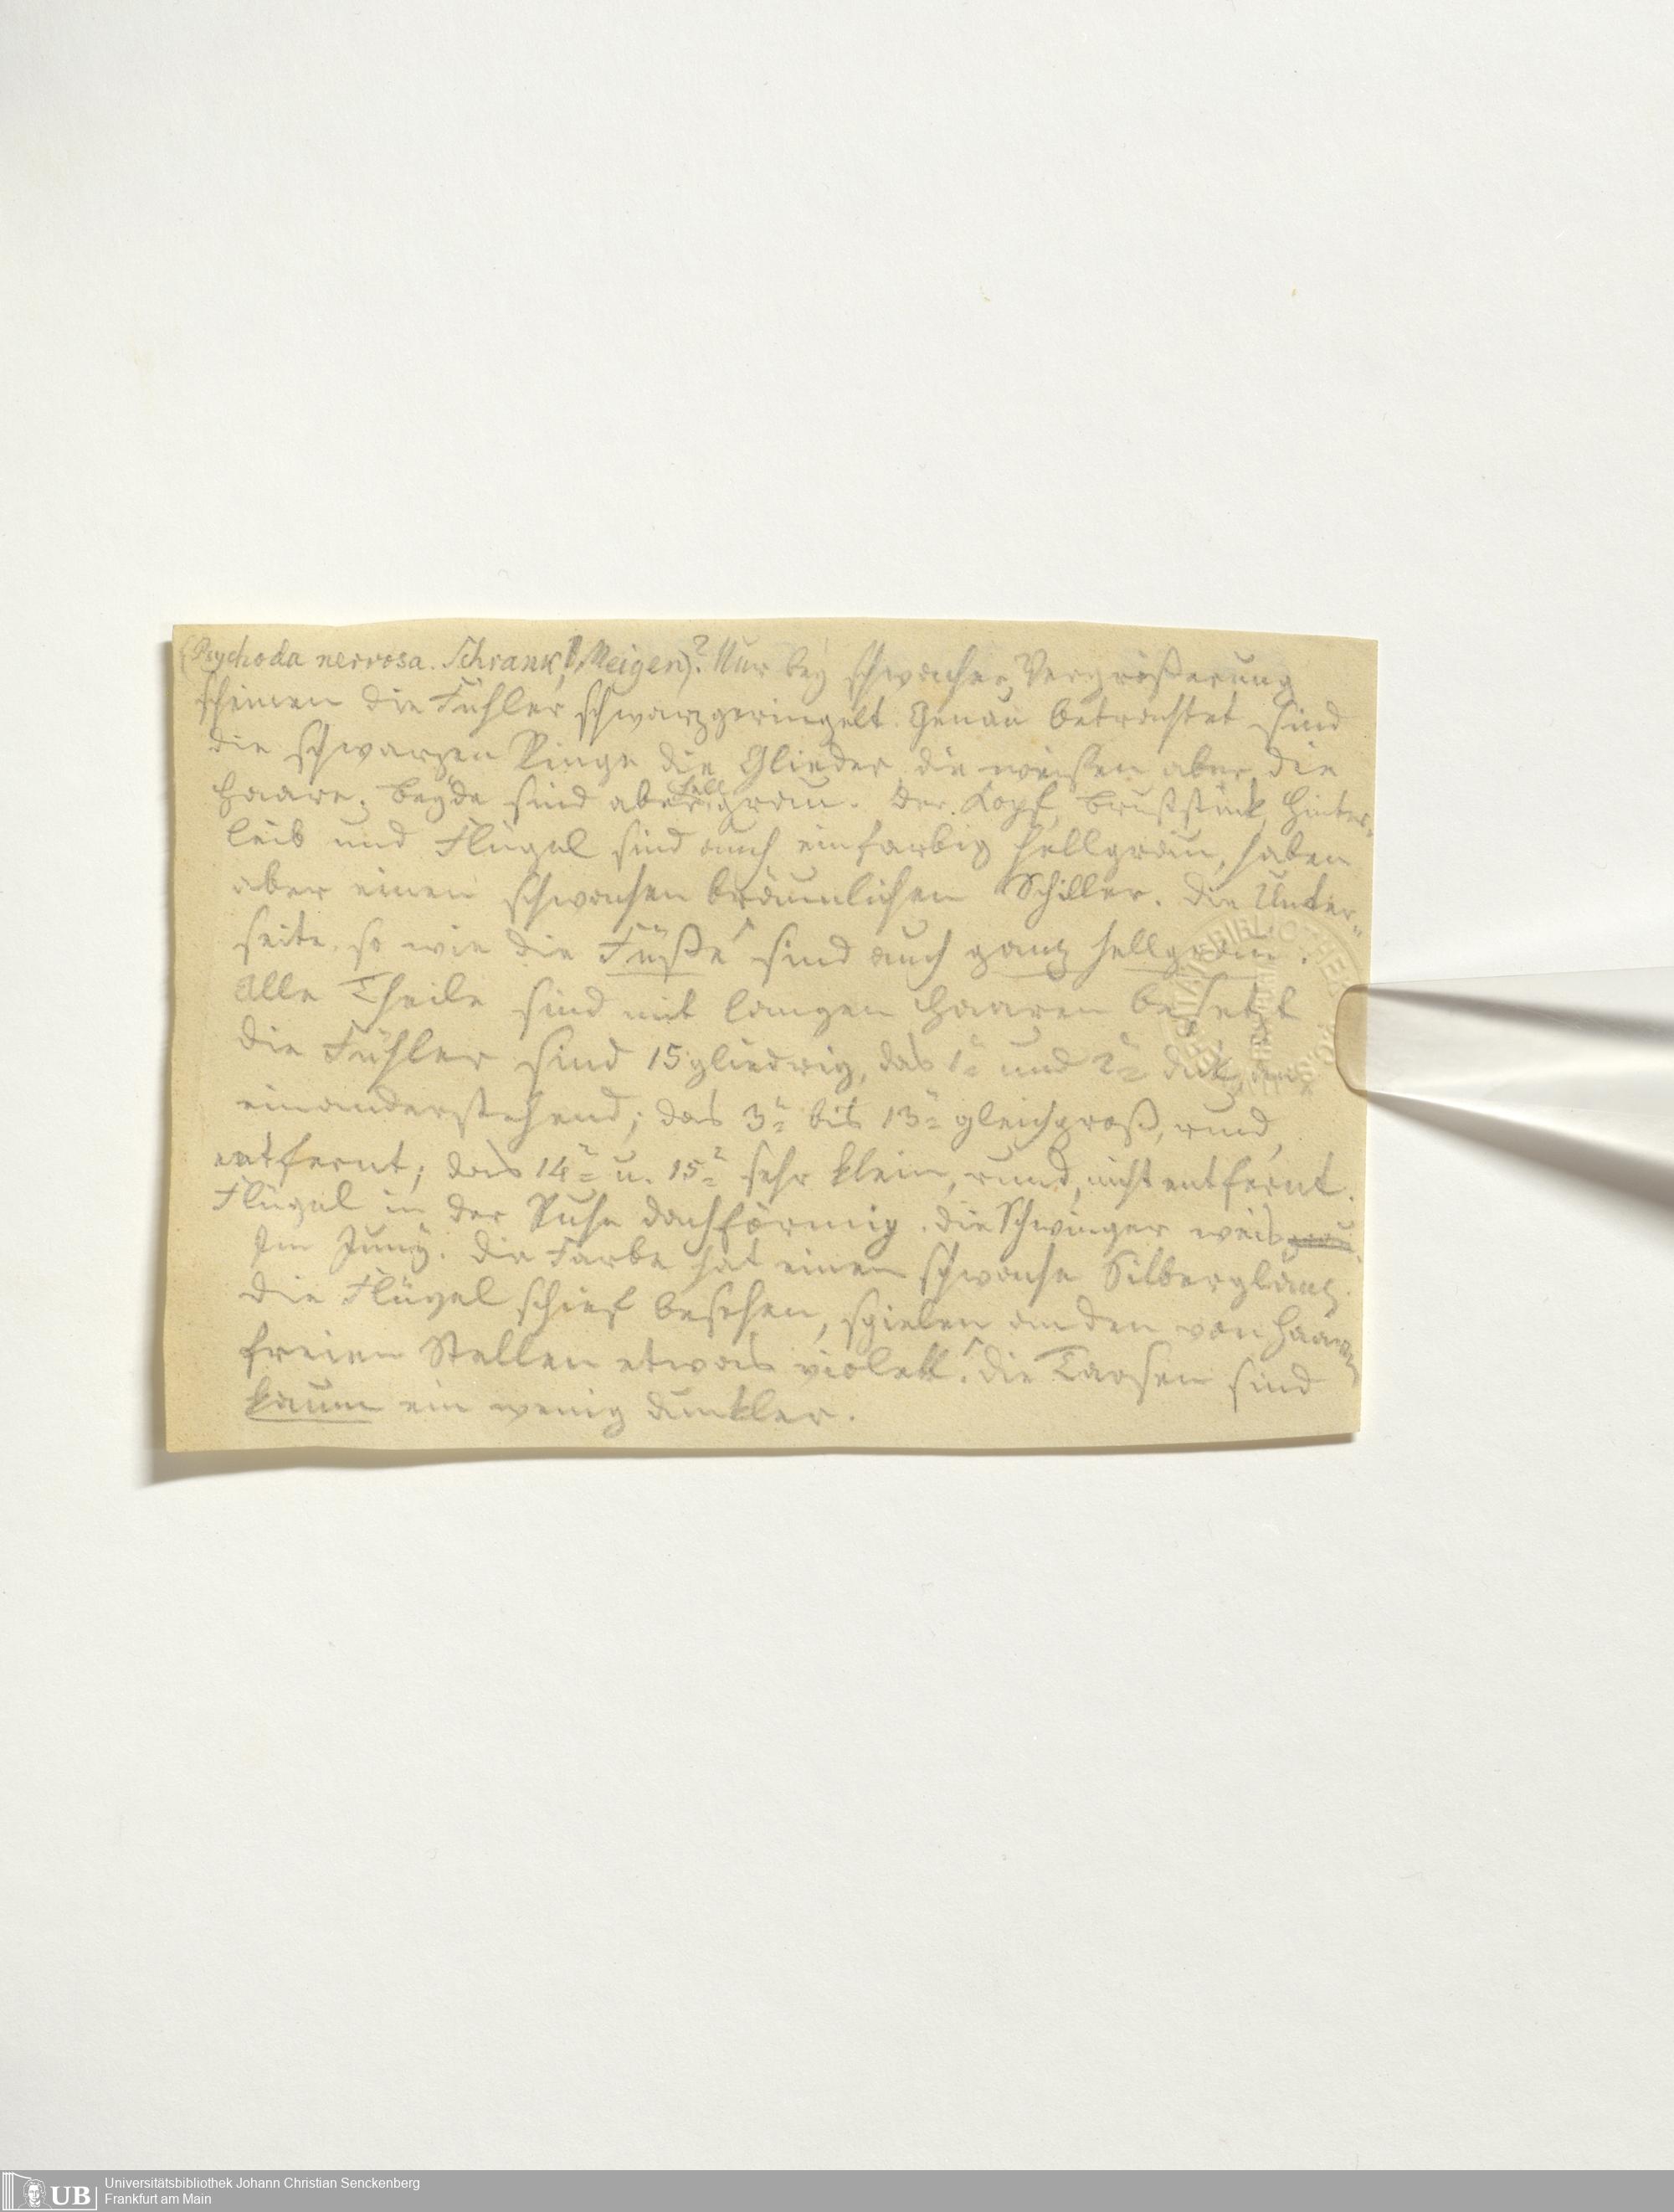 (Psychoda nervosa. Schrank, Meigen)? Nur bey schwacher Vergrößerung
scheinen die Fühler schwarzgeringelt. Genau betrachtet sind
die schwarzen Ringe die Glieder, die weißen aber die
Haare; beyde sind aber hell grau. Der Kopf, Bruststük, Hinter-
leib und Flügel sind auch einfarbig hellgrau, haben
aber einen schwachen bräunlichen Schiller. Die Unter-
seite, so wie die Füße sind auch ganz hellgrau.
Alle Theile sind mit langen Haaren besetzt
Die Fühler sind 15gliedrig, das 1te und 2te dik, an
einanderstehend; das 3te bis 13te gleichgroß, rund,
entfernt; das 14te u. 15te sehr klein, rund, nicht entfernt.
Flügel in der Ruhe dachförmig. Die Schwinger weis grau.
Im Juny. Die Farbe hat einen schwache Silberglanz.
Die Flügel schief besehen, spielen an den von Haaren
freien Stellen etwas violett. Die Tarsen sind
kaum ein wenig dunkler.
UNIVERSITÄTSBIBLIOTHEK
UB Universitätsbibliothek Johann Christian Senckenberg
Frankfurt am Main